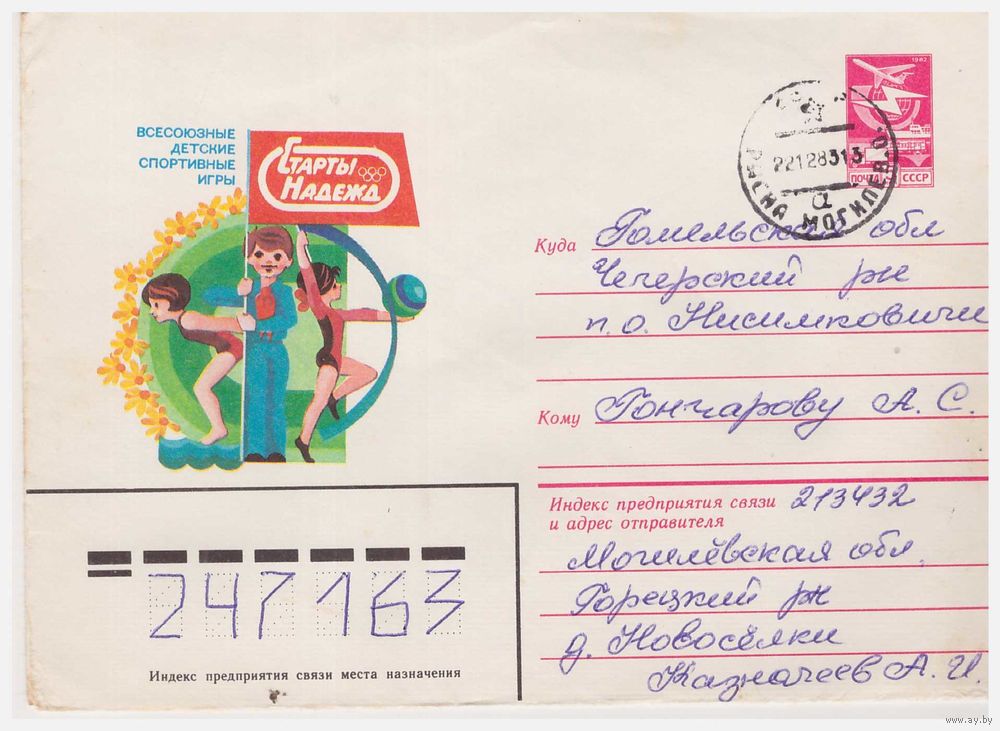 ВСЕСОЮЗНЫЕ
ДЕТСКИЕ
СПОРТИВНЫЕ
ИГРЫ
СТАРТЫ
НАДЕЖД
1982
ПОЧТА СССР
221283
РЯСНА МОГИЛЕВ.О.
а
Куда Гомельская обл
Чечерский рн
п.о. Нисимковичи
Кому Гончарову А. С.
Индекс предприятия связи 213432
и адрес отправителя
Могилёвская обл.
Горецкий рн
д. Новосёлки
Казначеев А. И.
247163
Индекс предприятия связи места назначения
www.ay.by